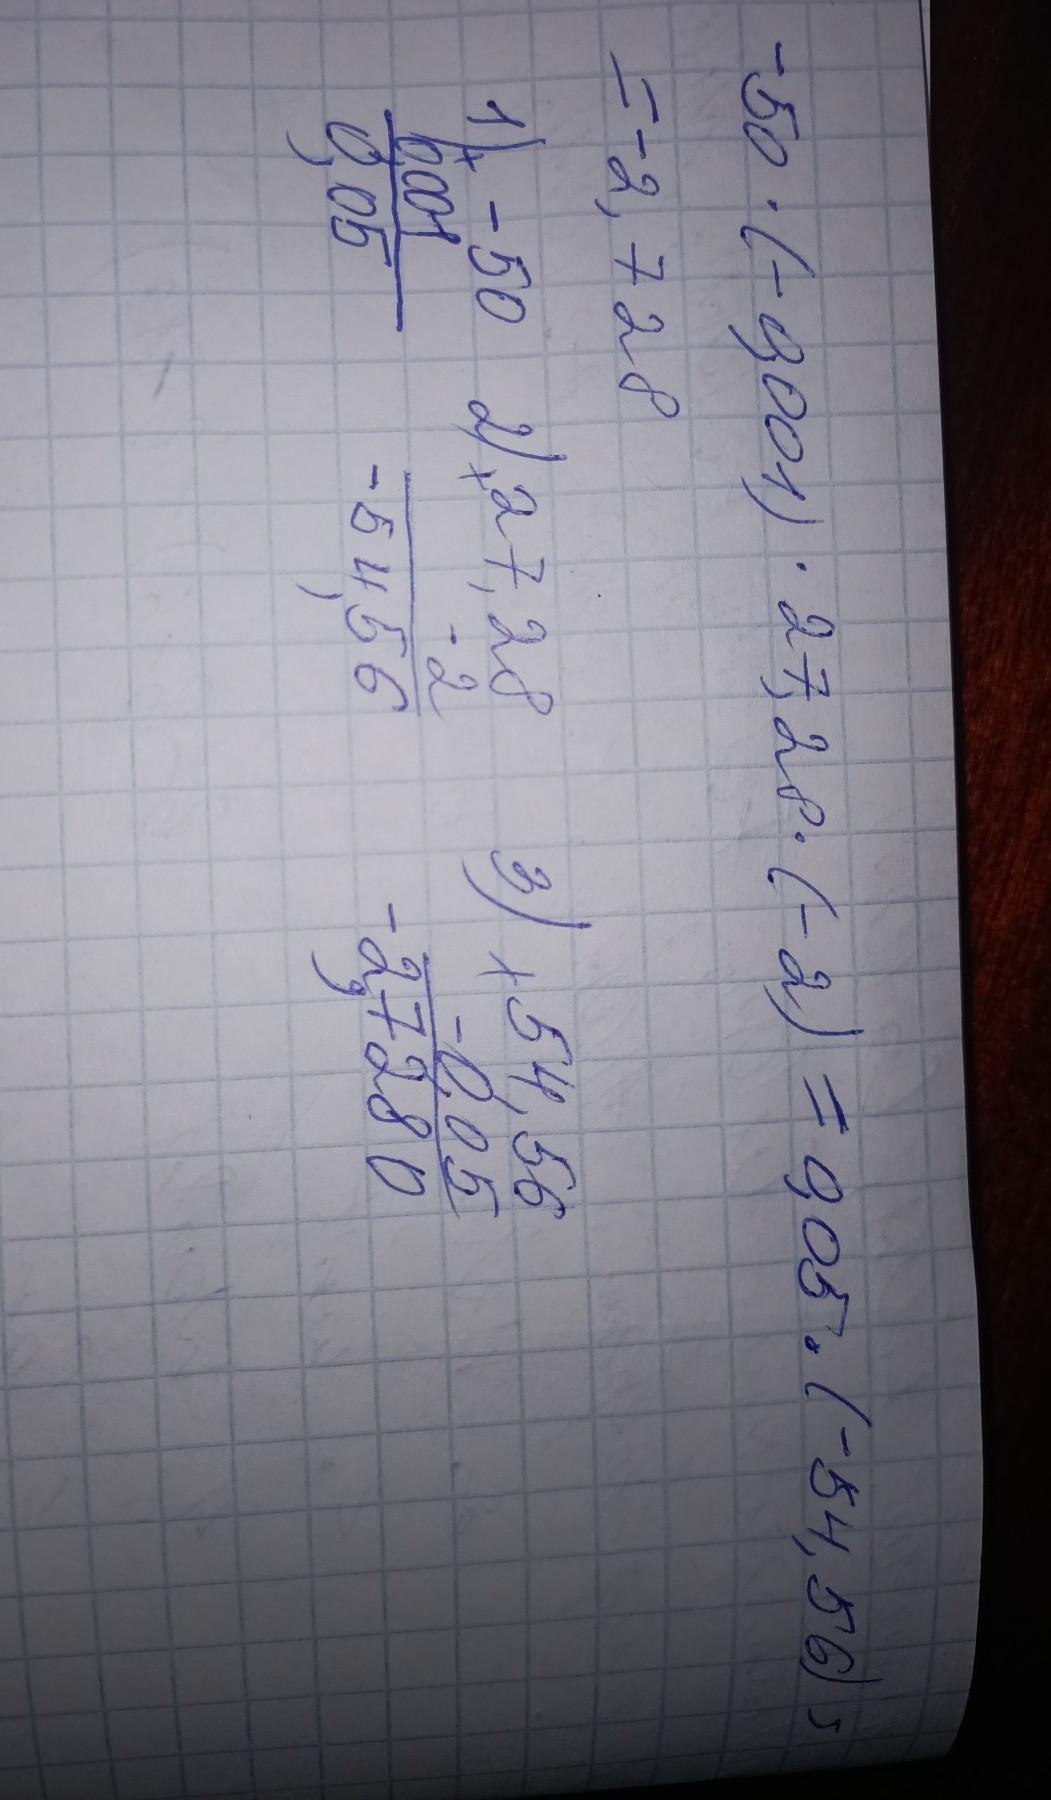 -50 · (-0,001) · 27,28 · (-2) = 0,05 · (-54,56) =
= -2,728
1) × -50
0,001
0,05
2) × 27,28
-2
-54,56
3) × 54,56
-0,05
-2,7280